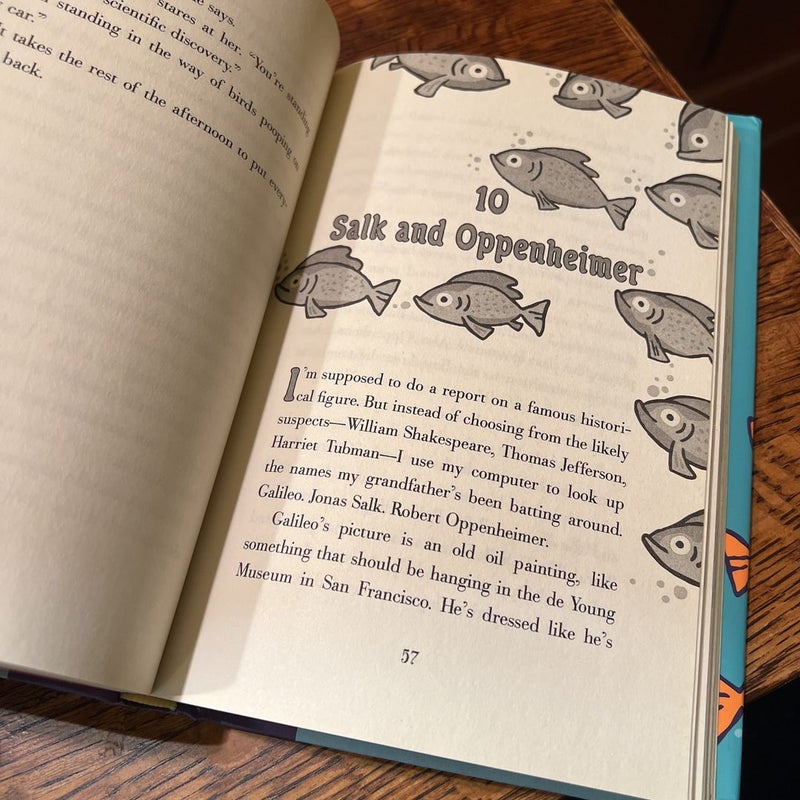 he says.
stares at her. "You're standing
scientific discovery."
standing in the way of birds pooping on
car."
It takes the rest of the afternoon to put every-
back.
10
Salk and Oppenheimer
I'm supposed to do a report on a famous histori-
cal figure. But instead of choosing from the likely
suspects—William Shakespeare, Thomas Jefferson,
Harriet Tubman—I use my computer to look up
the names my grandfather's been batting around.
Galileo. Jonas Salk. Robert Oppenheimer.
Galileo's picture is an old oil painting, like
something that should be hanging in the de Young
Museum in San Francisco. He's dressed like he's
57